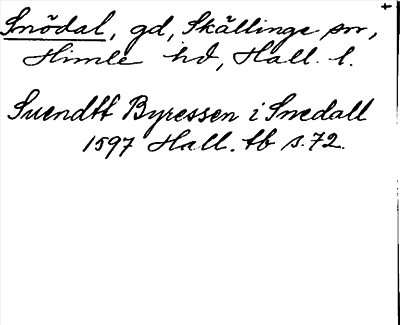 Snödal, gd, Skällinge sn,
Himle hd, Hall. l.
Suendtt Byressen i Snedall
1597 Hall. tb s. 72.